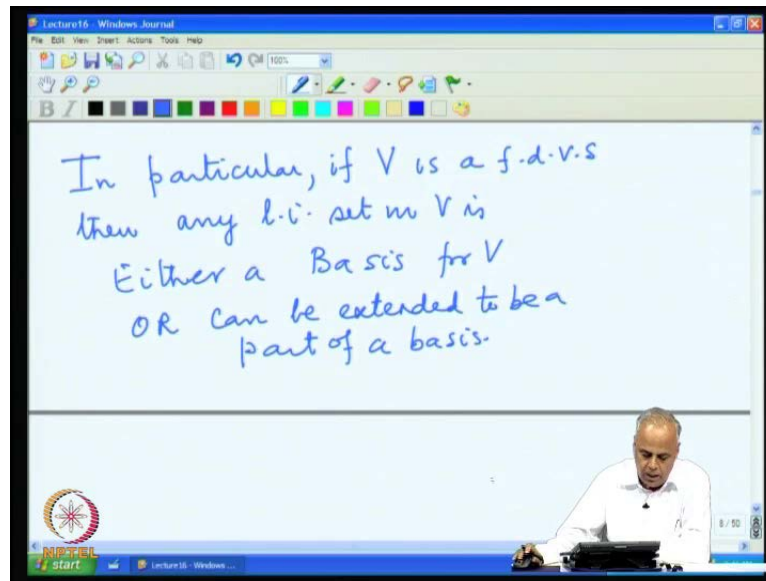 Lecture16 - Windows Journal
File Edit View Insert Actions Tools Help
100%
B I
In particular, if V is a f.d.v.s
then any l.i. set in V is
Either a Basis for V
OR can be extended to be a
part of a basis.
8 / 50
NPTEL
start Lecture16 - Windows ...